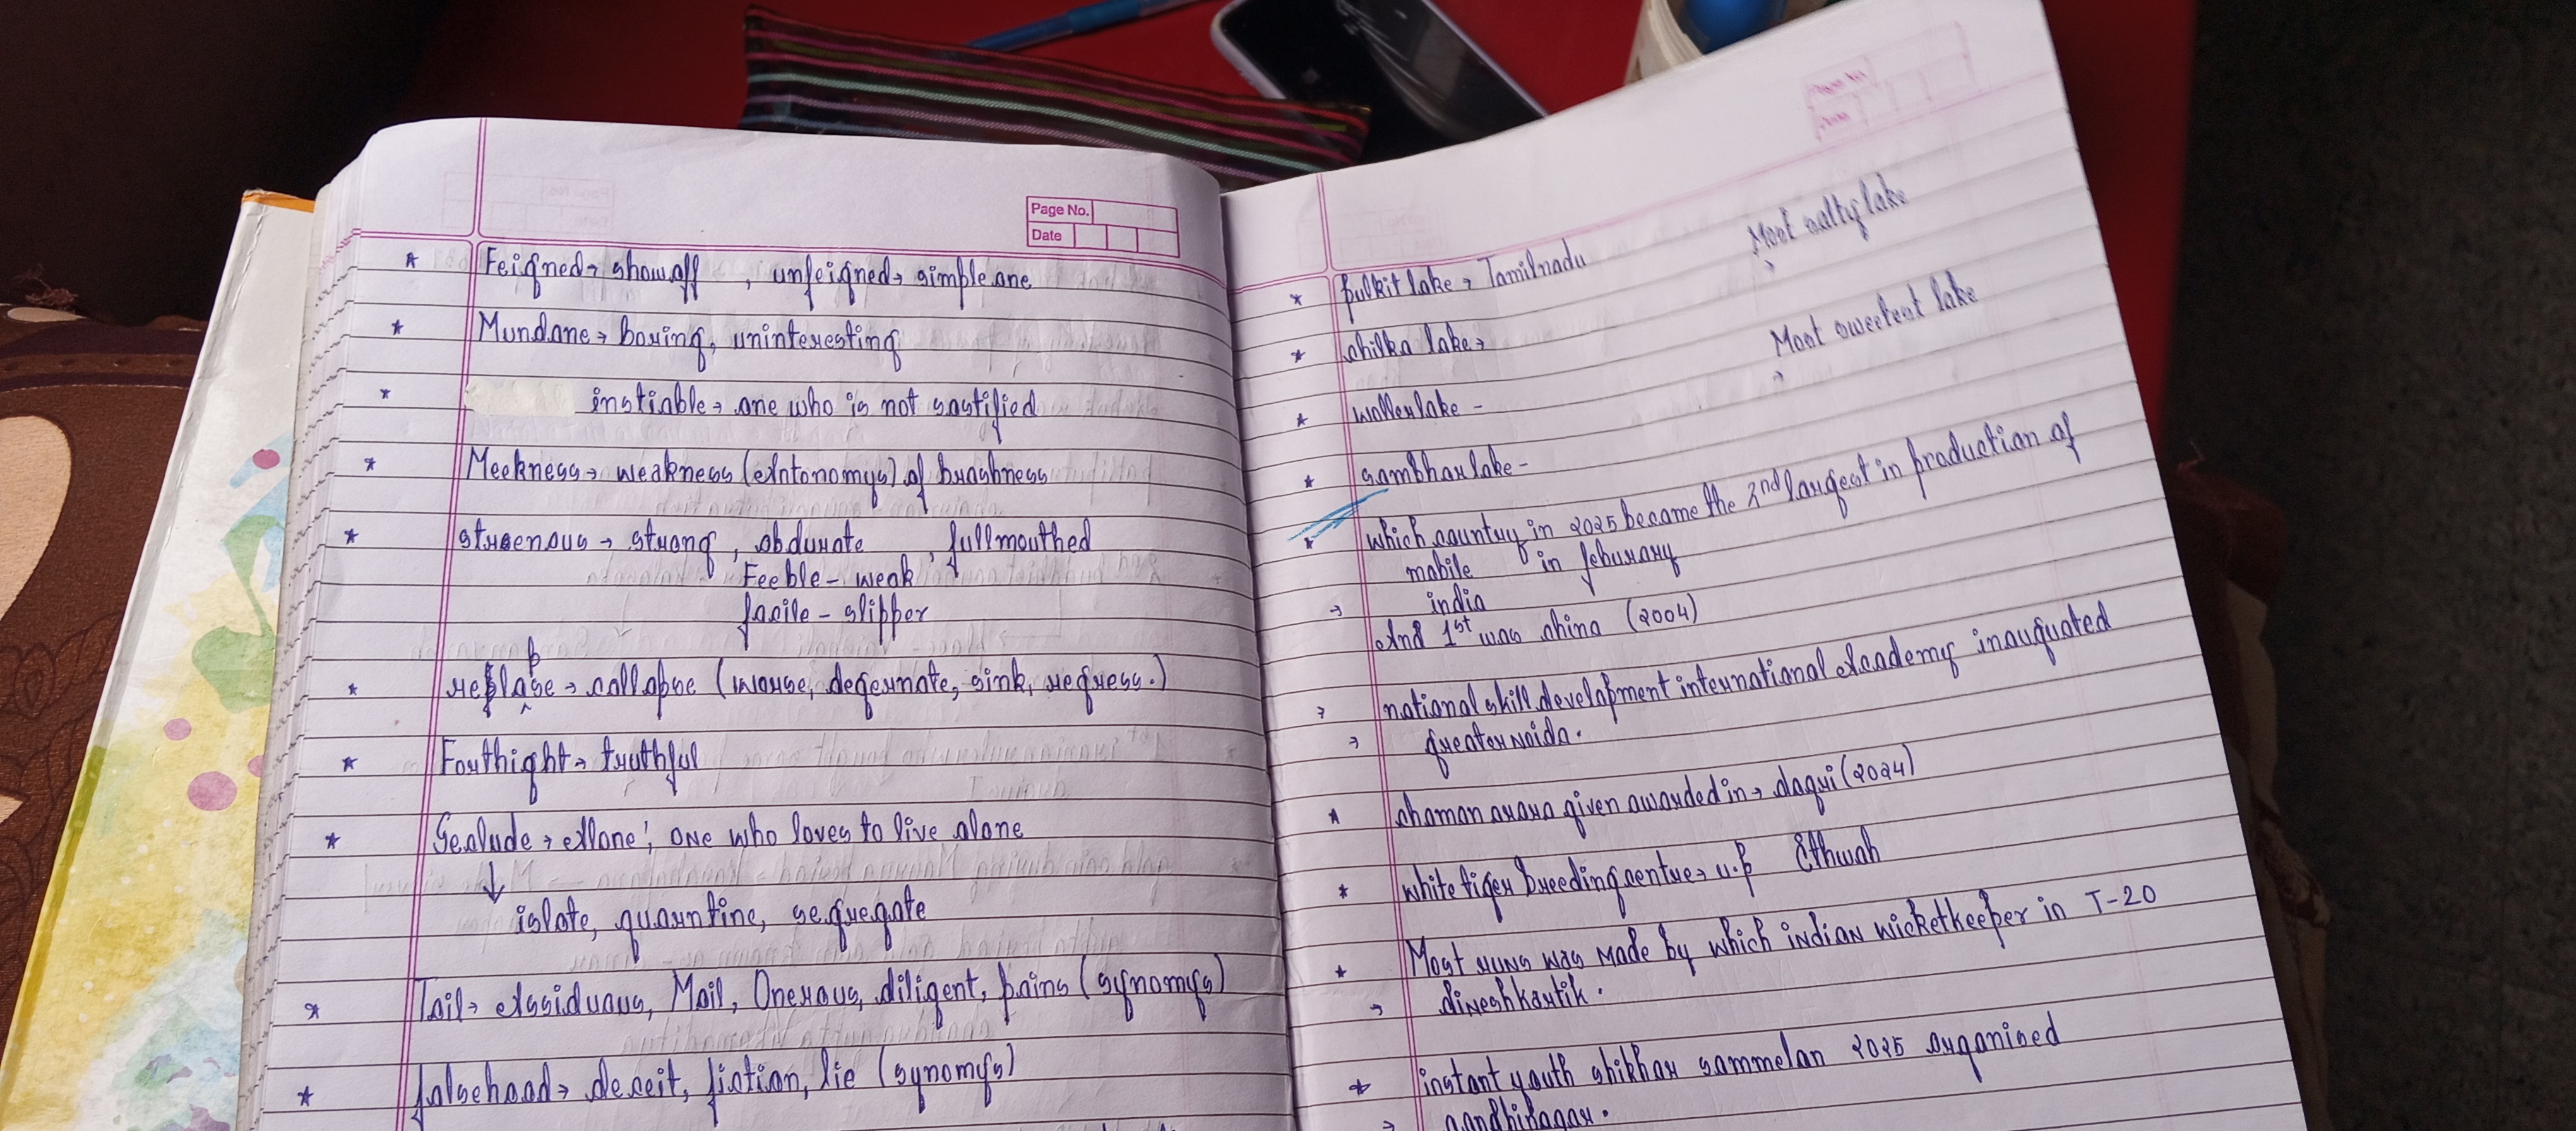 Page No.
Date
* Feigned → showoff , unfeigned → simple one
* Mundane → boring, uninteresting
* instiable → one who is not sastified
* Meekness → weakness (Antonomys) of brashness
* strenous → strong, obdurate , fullmouthed
Feeble - weak
facile - slipper
* relapse → collapse (worse, degernate, sink, regress.)
* Forthight → truthful
* Seclude → Alone; one who loves to live alone
↓
islate, quarntine, segregate
* Toil → Assiduous, Moil, Onerous, diligent, pains (synomys)
* falsehood → deceit, fiction, lie (synomys)
* pulkit lake → Tamilnadu
Most salty lake
* chilka lake →
→ Most sweetest lake
* woller lake -
* sambhar lake -
* which country in 2025 became the 2nd largest in production of
mobile in feburary
→ india
And 1st was china (2004)
→ national skill development international Academy inaugrated
→ greater noida.
* chaman arora given awarded in → dogri (2024)
* white tiger breeding centre → u.p Ethwah
* Most runs was made by which indian wicketkeeper in T-20
→ dinesh kartik.
* instant youth shikhar sammelan 2025 organised
→ gandhinagar.